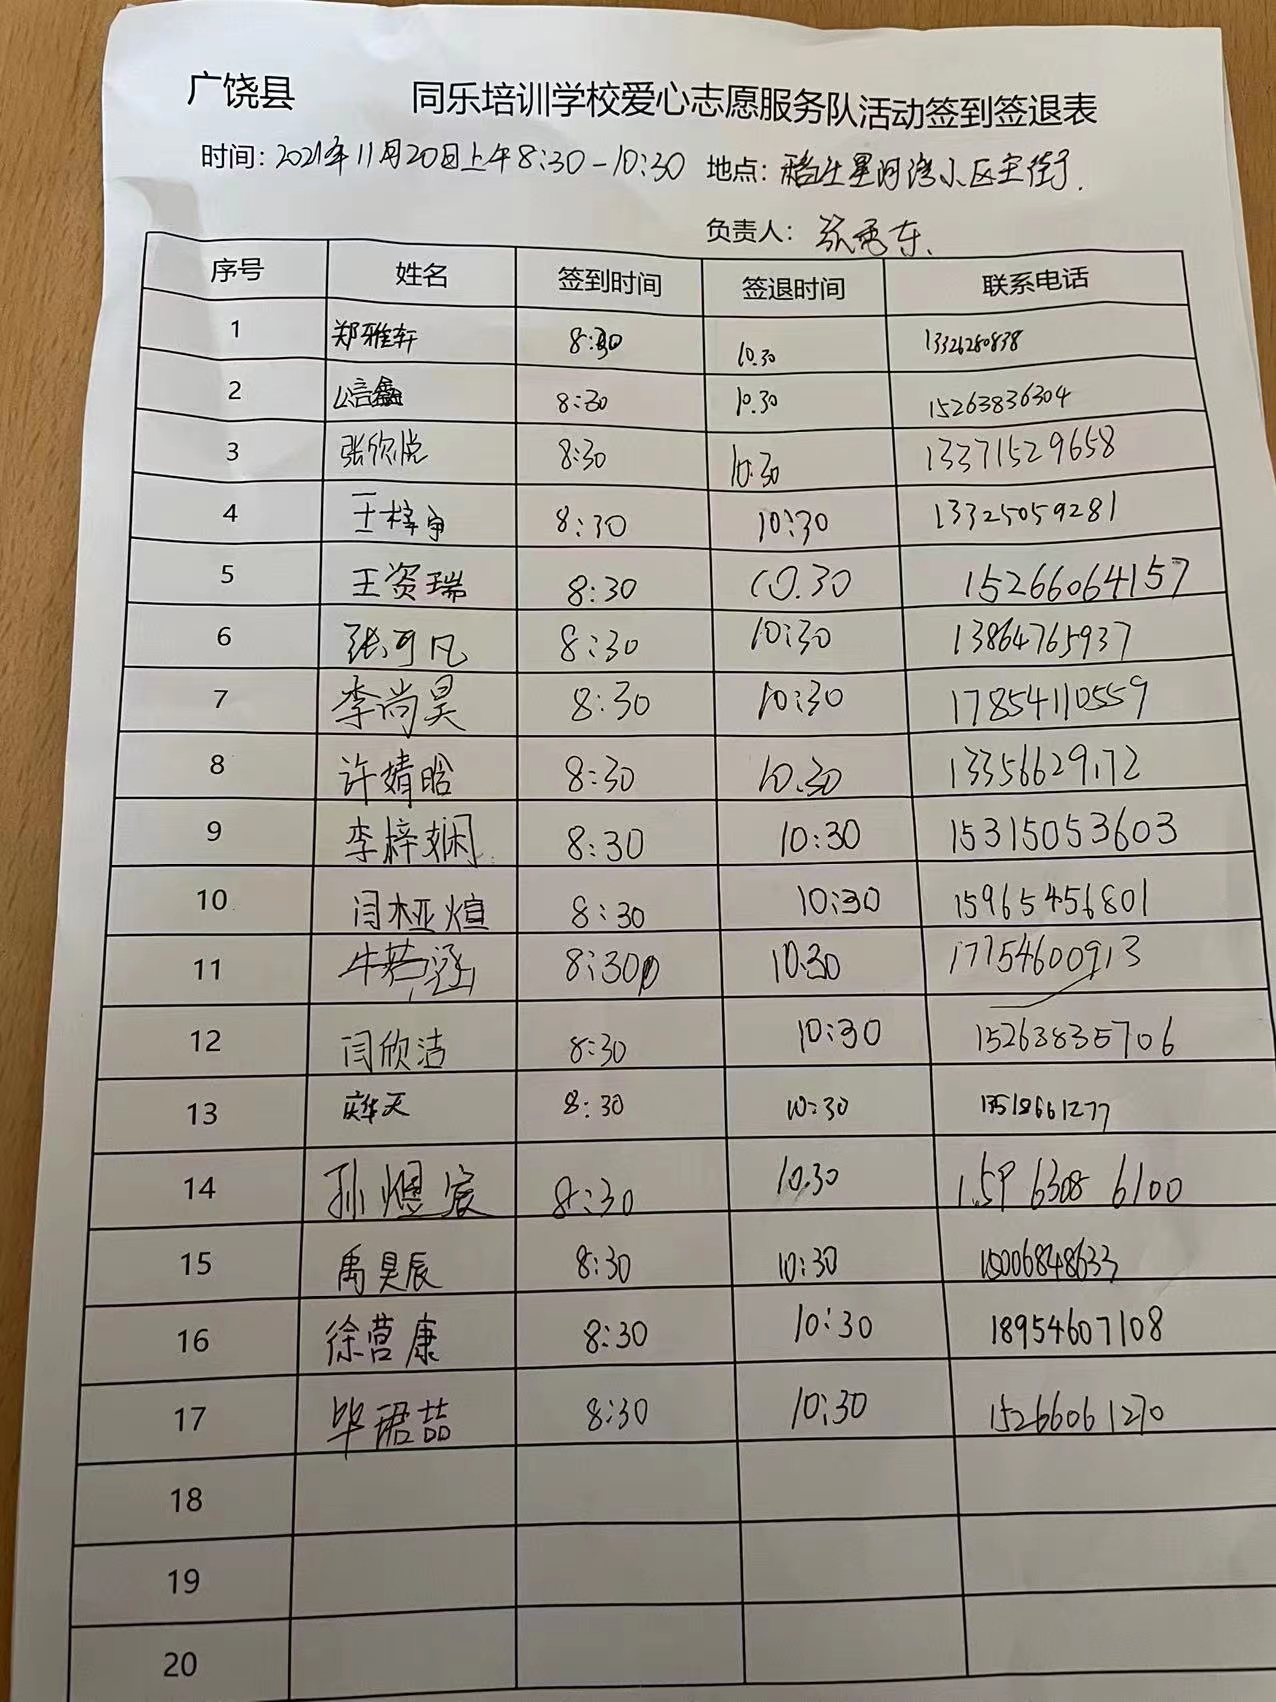 广饶县 同乐培训学校爱心志愿服务队活动签到签退表
时间：2021年11月20日上午8:30-10:30 地点：星河湾小区主街.
负责人：
序号 姓名 签到时间 签退时间 联系电话
1 郑雅轩 8:30 10.30 13326280838
2 8:30 10.30 15263836304
3 张欣悦 8:30 10:30 13371529658
4 8:30 10:30 13325059281
5 王资瑞 8:30 10.30 15266064157
6 张可凡 8:30 10:30 13864765937
7 李尚昊 8:30 10:30 17854110559
8 许婧晗 8:30 10.30 13356629172
9 李梓娴 8:30 10:30 15315053603
10 闫桠煊 8:30 10:30 15965456801
11 牛若涵 8:30 10.30 17754600913
12 闫欣洁 8:30 10:30 15263835706
13 8:30 10:30
14 孙煜宸 8:30 10.30 159 6308 6100
15 禹昊辰 8:30 10:30 15006848633
16 徐营康 8:30 10:30 18954607108
17 毕珺喆 8:30 10:30 15266061270
18
19
20